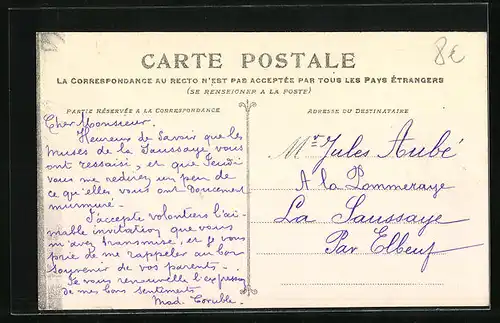 8€
CARTE POSTALE
LA CORRESPONDANCE AU RECTO N'EST PAS ACCEPTÉE PAR TOUS LES PAYS ÉTRANGERS
(SE RENSEIGNER A LA POSTE)
PARTIE RÉSERVÉE A LA CORRESPONDANCE
Cher Monsieur.
Heureux de savoir que les
muses de la Saussaye vous
ont ressaisi, et que Jeudi
vous me redirez un peu de
ce qu'elles vous ont doucement
murmuré.
J'accepte volontiers l'ai-
mable invitation que vous
m'avez transmise, et vous
prie de me rappeler au bon
souvenir de vos parents.
Je vous renouvelle l'expression
de mes bons sentiments
Mad.
ADRESSE DU DESTINATAIRE
Mr Jules Aubé
A la Pommeraye
La Saussaye
Par Elbeuf